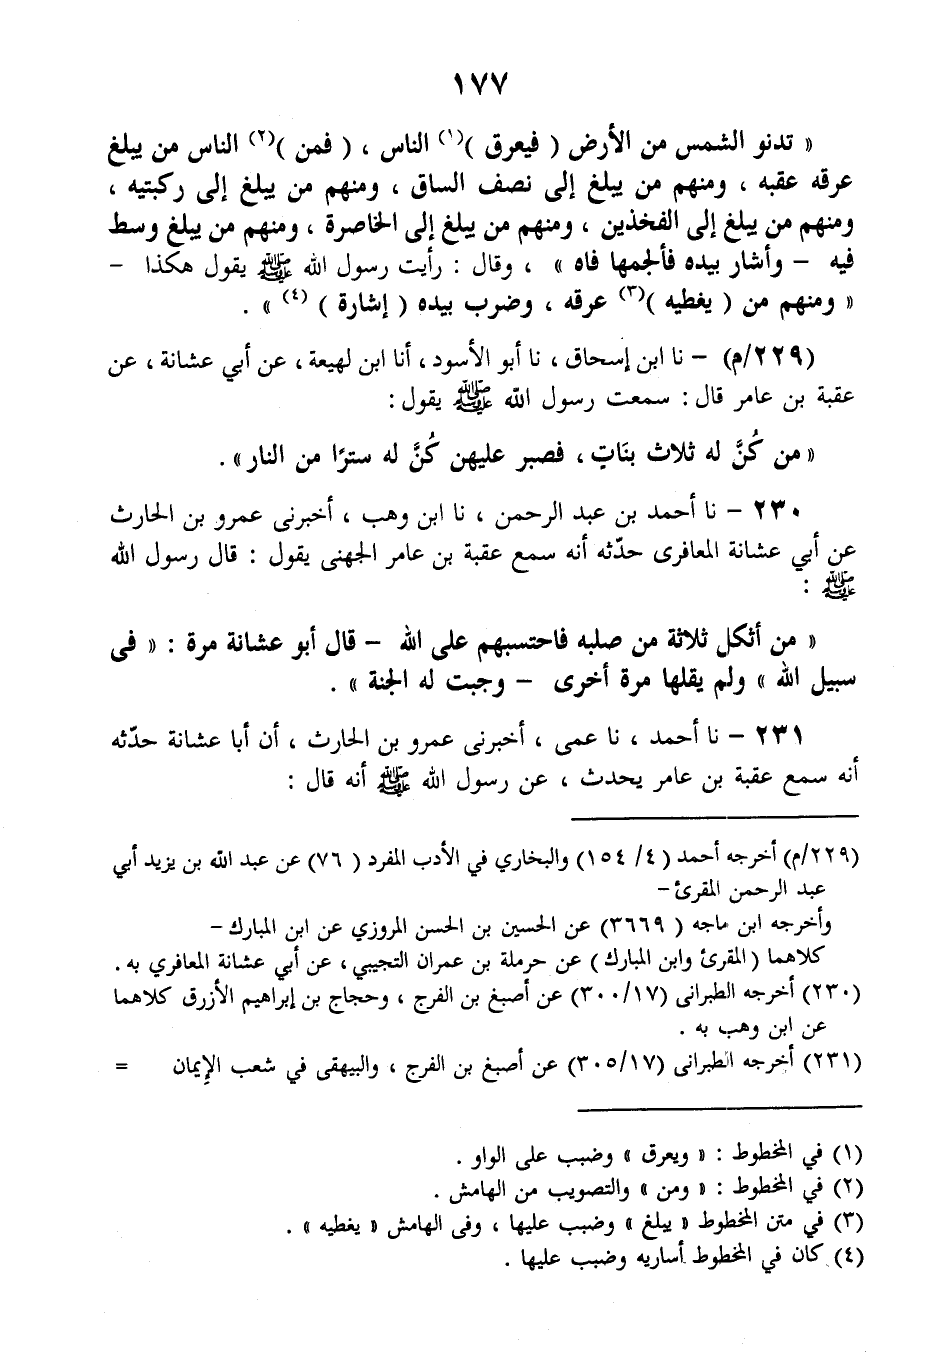 ١٧٧
« تدنو الشمس من الأرض ( فيعرق )(١) الناس ، ( فمن )(٢) الناس من يبلغ
عرقه عقبه ، ومنهم من يبلغ إلى نصف الساق ، ومنهم من يبلغ إلى ركبتيه ،
ومنهم من يبلغ إلى الفخذين ، ومنهم من يبلغ إلى الخاصرة ، ومنهم من يبلغ وسط
فيه – وأشار بيده فألجمها فاه » ، وقال : رأيت رسول الله ﷺ يقول هكذا –
« ومنهم من ( يغطيه )(٣) عرقه ، وضرب بيده ( إشارة ) (٤) » .
(٢٢٩/م) – نا ابن إسحاق ، نا أبو الأسود ، أنا ابن لهيعة ، عن أبي عشانة ، عن
عقبة بن عامر قال : سمعت رسول الله ﷺ يقول :
« من كُنَّ له ثلاث بنَات ، فصبر عليهن كُنَّ له سترًا من النار » .
٢٣٠ – نا أحمد بن عبد الرحمن ، نا ابن وهب ، أخبرنى عمرو بن الحارث
عن أبي عشانة المعافرى حدّثه أنه سمع عقبة بن عامر الجهنى يقول : قال رسول الله
ﷺ :
« من أثكل ثلاثة من صلبه فاحتسبهم على الله – قال أبو عشانة مرة : « فى
سبيل الله » ولم يقلها مرة أخرى – وجبت له الجنة » .
٢٣١ – نا أحمد ، نا عمى ، أخبرنى عمرو بن الحارث ، أن أبا عشانة حدّثه
أنه سمع عقبة بن عامر يحدث ، عن رسول الله ﷺ أنه قال :
(٢٢٩/م) أخرجه أحمد ( ٤/ ١٥٤) والبخاري في الأدب المفرد ( ٧٦) عن عبد الله بن يزيد أبي
عبد الرحمن المقرئ–
وأخرجه ابن ماجه ( ٣٦٦٩) عن الحسين بن الحسن المروزي عن ابن المبارك –
كلاهما (المقرئ وابن المبارك) عن حرملة بن عمران التجيبي ، عن أبي عشانة المعافري به .
(٢٣٠) أخرجه الطبرانى (٣٠٠/١٧) عن أصبغ بن الفرج ، وحجاج بن إبراهيم الأزرق كلاهما
عن ابن وهب به .
(٢٣١) أخرجه الطبرانى (٣٠٥/١٧) عن أصبغ بن الفرج ، والبيهقى في شعب الإيمان =
(١) في المخطوط : « ويعرق » وضبب على الواو .
(٢) في المخطوط : « ومن » والتصويب من الهامش .
(٣) في متن المخطوط « يبلغ » وضبب عليها ، وفى الهامش « يغطيه » .
(٤) كان في المخطوط أساريه وضبب عليها .